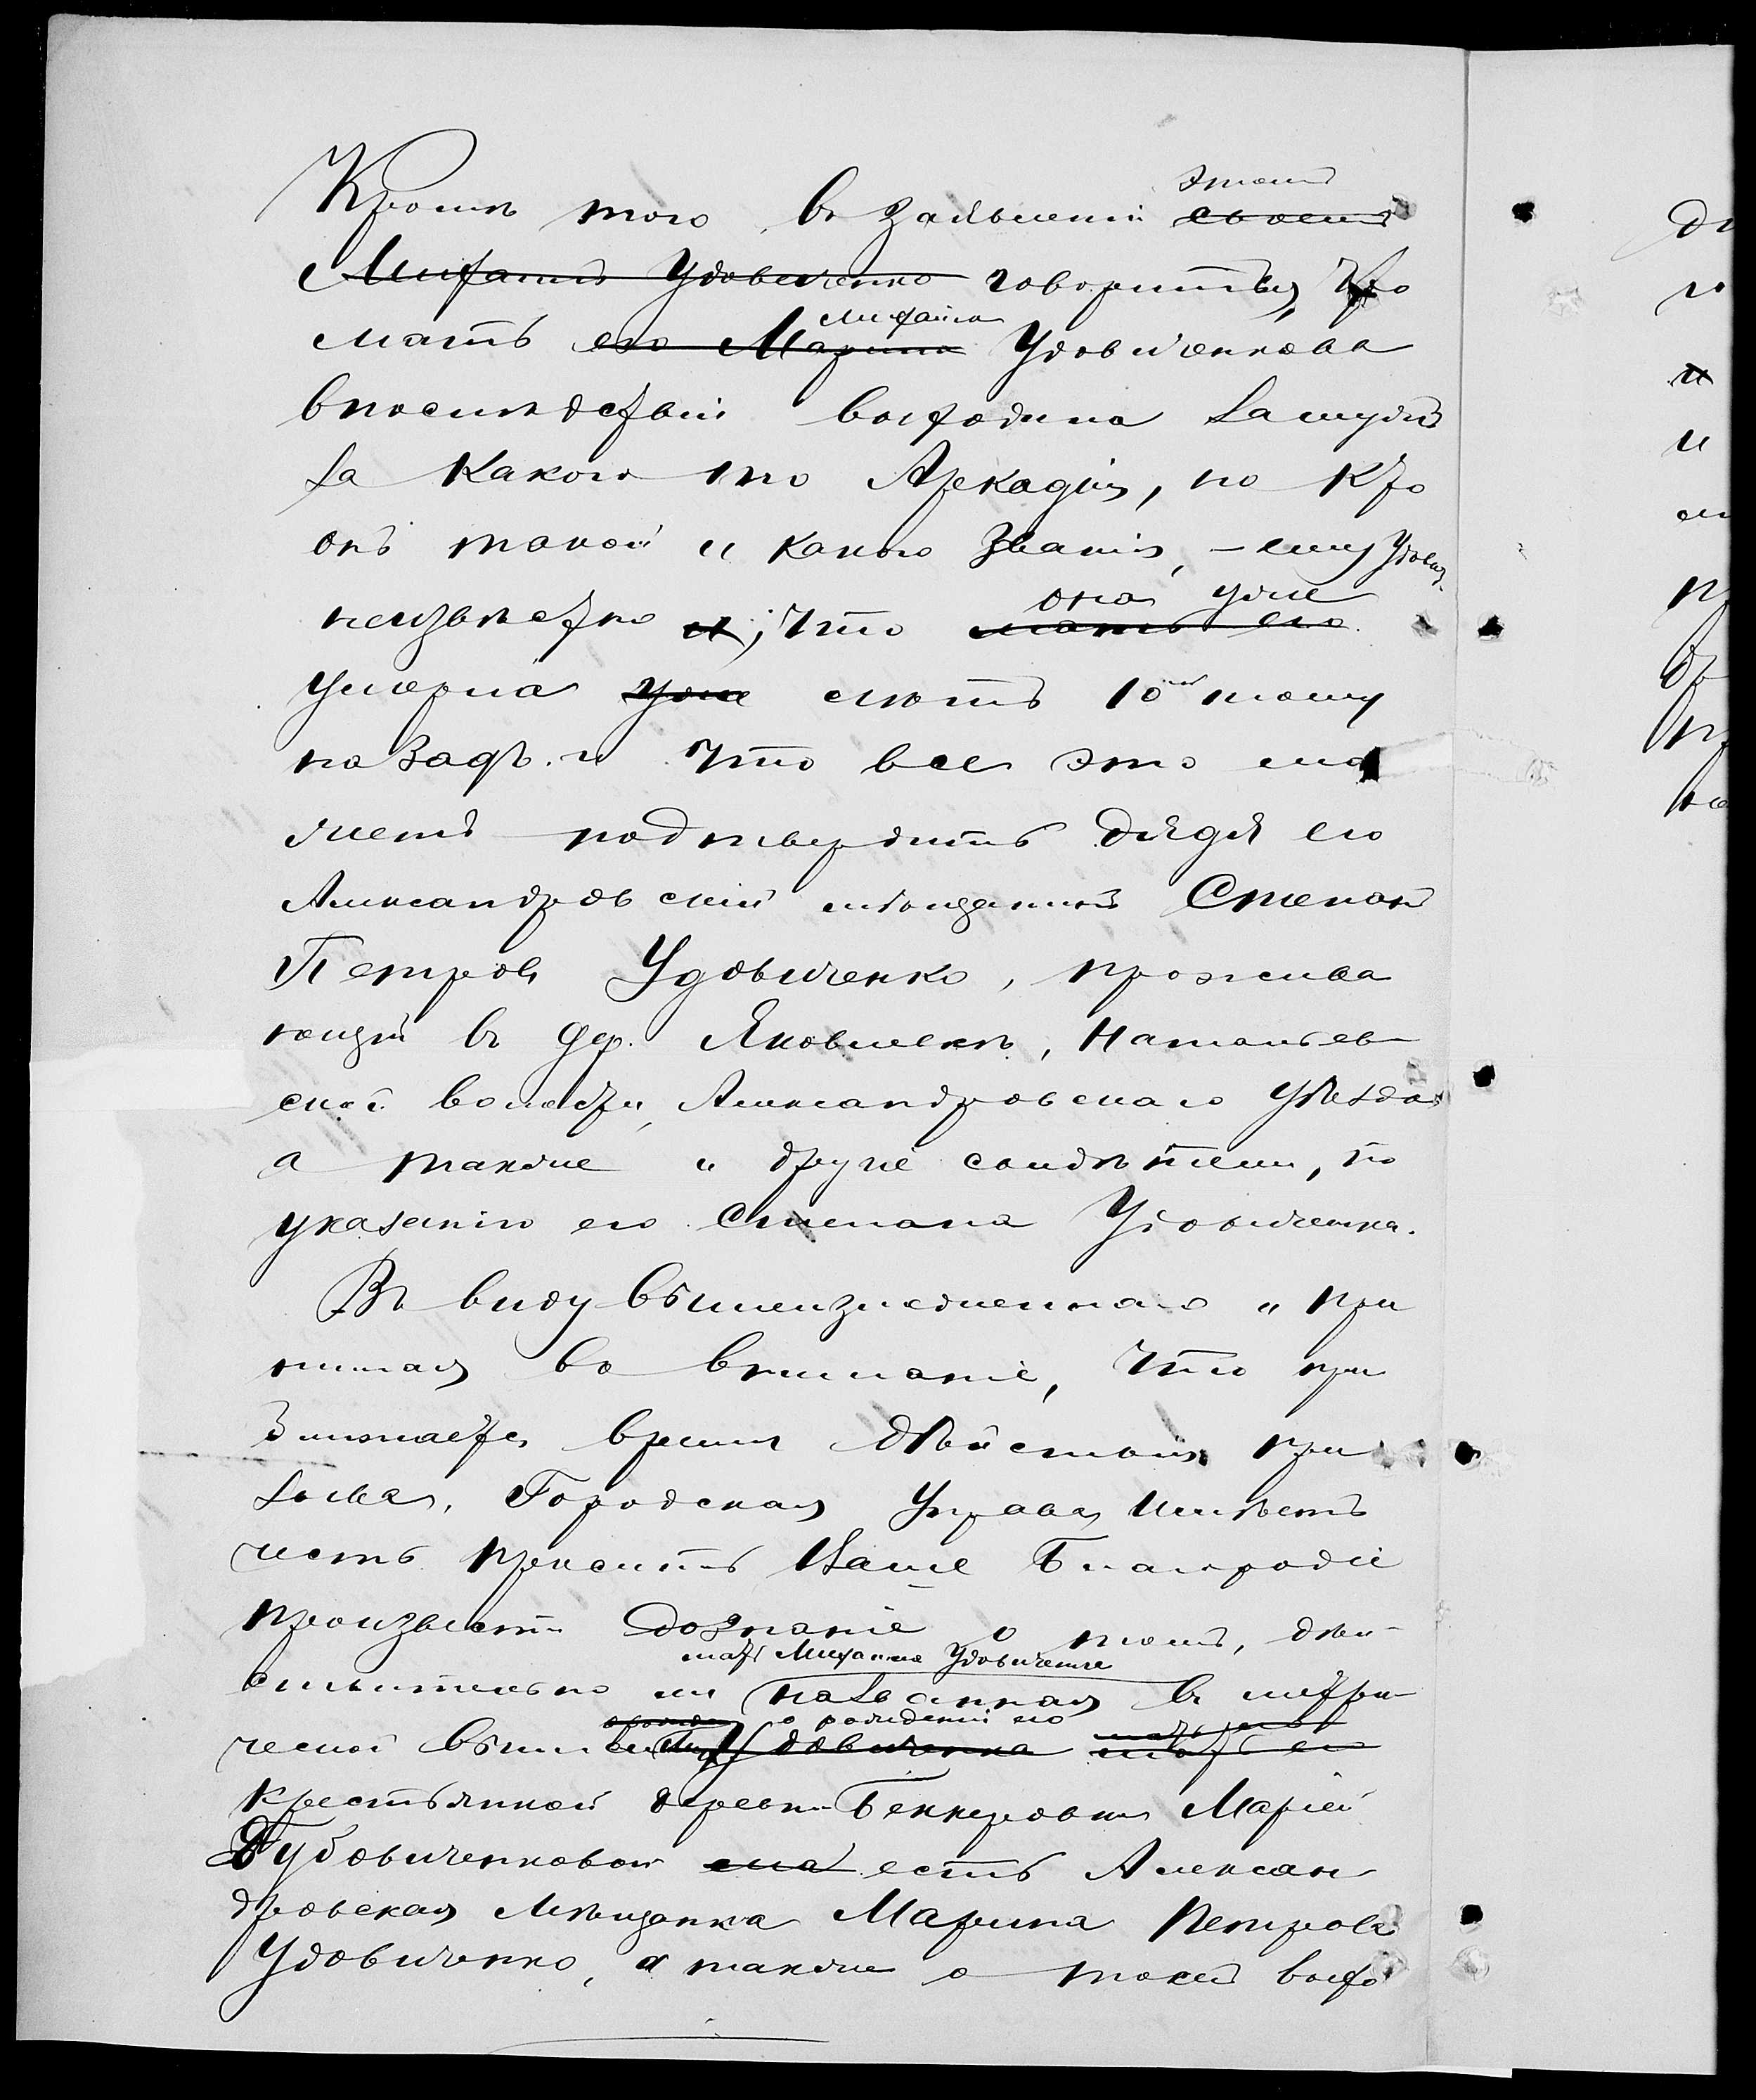 Кромѣ того, въ заявленіи своемъ этомъ
Михаилъ Удовиченко говорится, что
мать его Марина Михаила Удовиченкова
впослѣдствіи выходила замужъ
за какого то Аркадія, но кто
онъ такой и какого званія, – ему Удович.
неизвѣстно и; что мать его она уже
умерла уже лѣтъ 10 тому
назадъ и что все это мо
жетъ подтвердить дядя его
Александровскій мѣщанинъ Степанъ
Петровъ Удовиченко, прожива
ющій въ дер. Яковлевкѣ, Натальев-
ской волости, Александровскаго уѣзда
а также и другіе свидѣтели, по
указанію его Степана Удовиченка.
Въ виду вышеизложеннаго и при
нимая во вниманіе, что при
ближается время дѣйствія при
зыва, Городская Управа имѣетъ
честь просить Ваше Благородіе
произвести дознаніе о томъ, дѣй-
мать Михаила Удовиченка
ствительно ли названная въ метри-
о рожденіи его
ческой выписи Удовиченка мать его
крестьянкой деревни Беккеровки Маріей
Дудовиченковой она есть Алексан
дровская мѣщанка Марина Петрова
Удовиченко, а также о томъ выхо